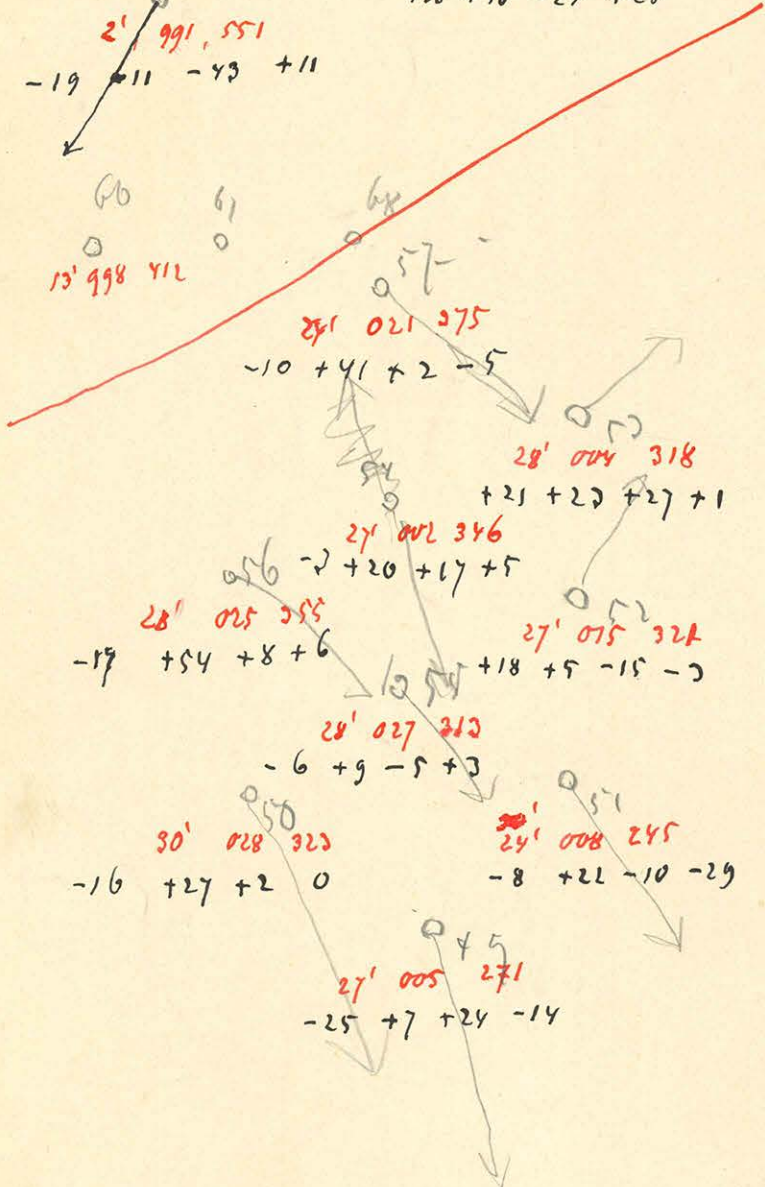 2' 991, 551
-19 +11 -43 +11
60 61 68
13' 998 412
57
24' 021 375
-10 +41 +2 -5
53
28' 004 318
+21 +23 +27 +1
54
27' 002 346
-3 +20 +17 +5
56
28' 025 355
-17 +54 +8 +6
52
27' 015 321
+18 +5 -15 -3
55
28' 027 313
-6 +9 -5 +3
50
30' 028 323
-16 +27 +2 0
51
24' 008 245
-8 +22 -10 -29
49
27' 005 271
-25 +7 +24 -14